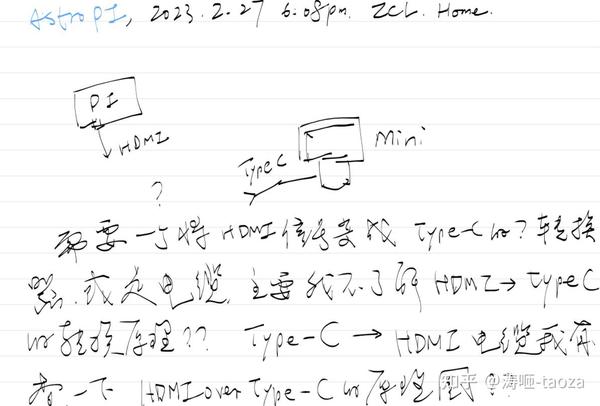 AstroPI, 2023.2.27 6:08pm. ZCL. Home.
PI
HDMI
Mini
TypeC
?
需要一个将HDMI信号变成 Type-C的?转换
器,或是电缆,主要我不了解HDMI→TypeC
的转换原理?? Type-C→HDMI电缆我有
看一下 HDMI over Type-C的原理图?
知乎 @涛咂-taoza